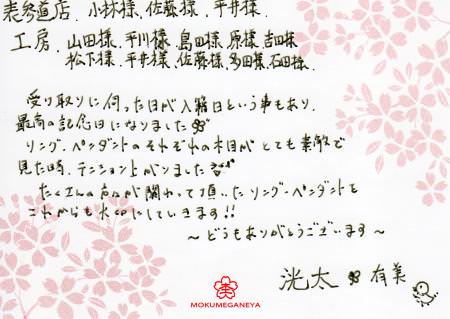 表参道店 小林様、佐藤様、平井様、
工房 山田様、平川様、島田様、原様、吉田様
松下様、平井様、佐藤様、多田様、石田様、
受け取りに伺った日が入籍日という事もあり、
最高の記念日になりました
リング、ペンダントのそれぞれの木目がとても素敵で
見た時、テンション上がりました
たくさんの方々が関わって頂いたリング・ペンダントを
これからも大切にしていきます!!
~どうもありがとうございます~
洸太 有美
MOKUMEGANEYA